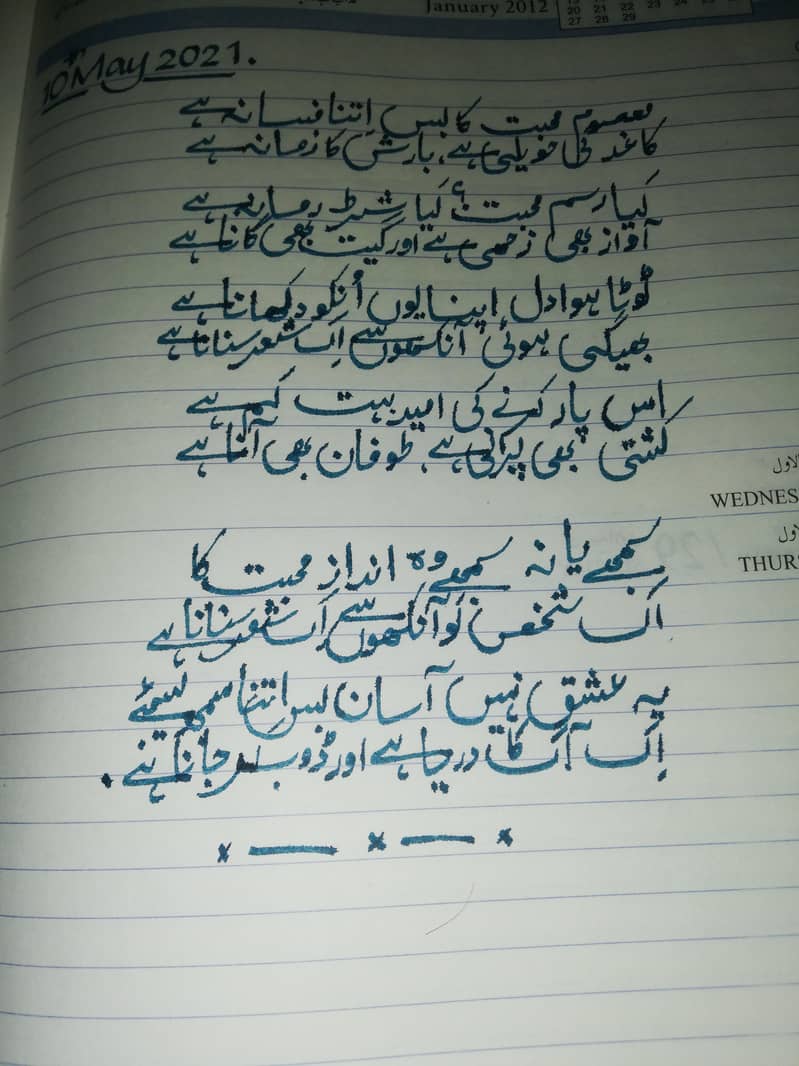 January 2012
20 21 22 23 24
27 28 29
10th May 2021.
معصوم محبت کا بس اِتنا فسانہ ہے
کاغذ کی حویلی ہے، بارش کا زمانہ ہے
کیا رسم محبت، کیا شرط زمانہ ہے
آواز بھی زخمی ہے اور گیت بھی گانا ہے
ٹوٹا ہوا دل اپنا یوں اُنکو دیکھانا ہے
بھیگی ہوئی آنکھوں سے اِک شعر سنانا ہے
اس پار کرنے کی امید بہت کم ہے
کشتی بھی پرانی ہے، طوفان بھی آنا ہے
سمجھے یا نہ سمجھے وہ انداز محبت کا
اِک شخص کو آنکھوں سے اِک شعر سنانا ہے
یہ عشق نہیں آسان بس اِتنا سمجھ لیجئے
اِک آگ کا دریا ہے اور ڈوب کر جانا ہے.
x — x — x
الاول
WEDNES
الاول
THUR